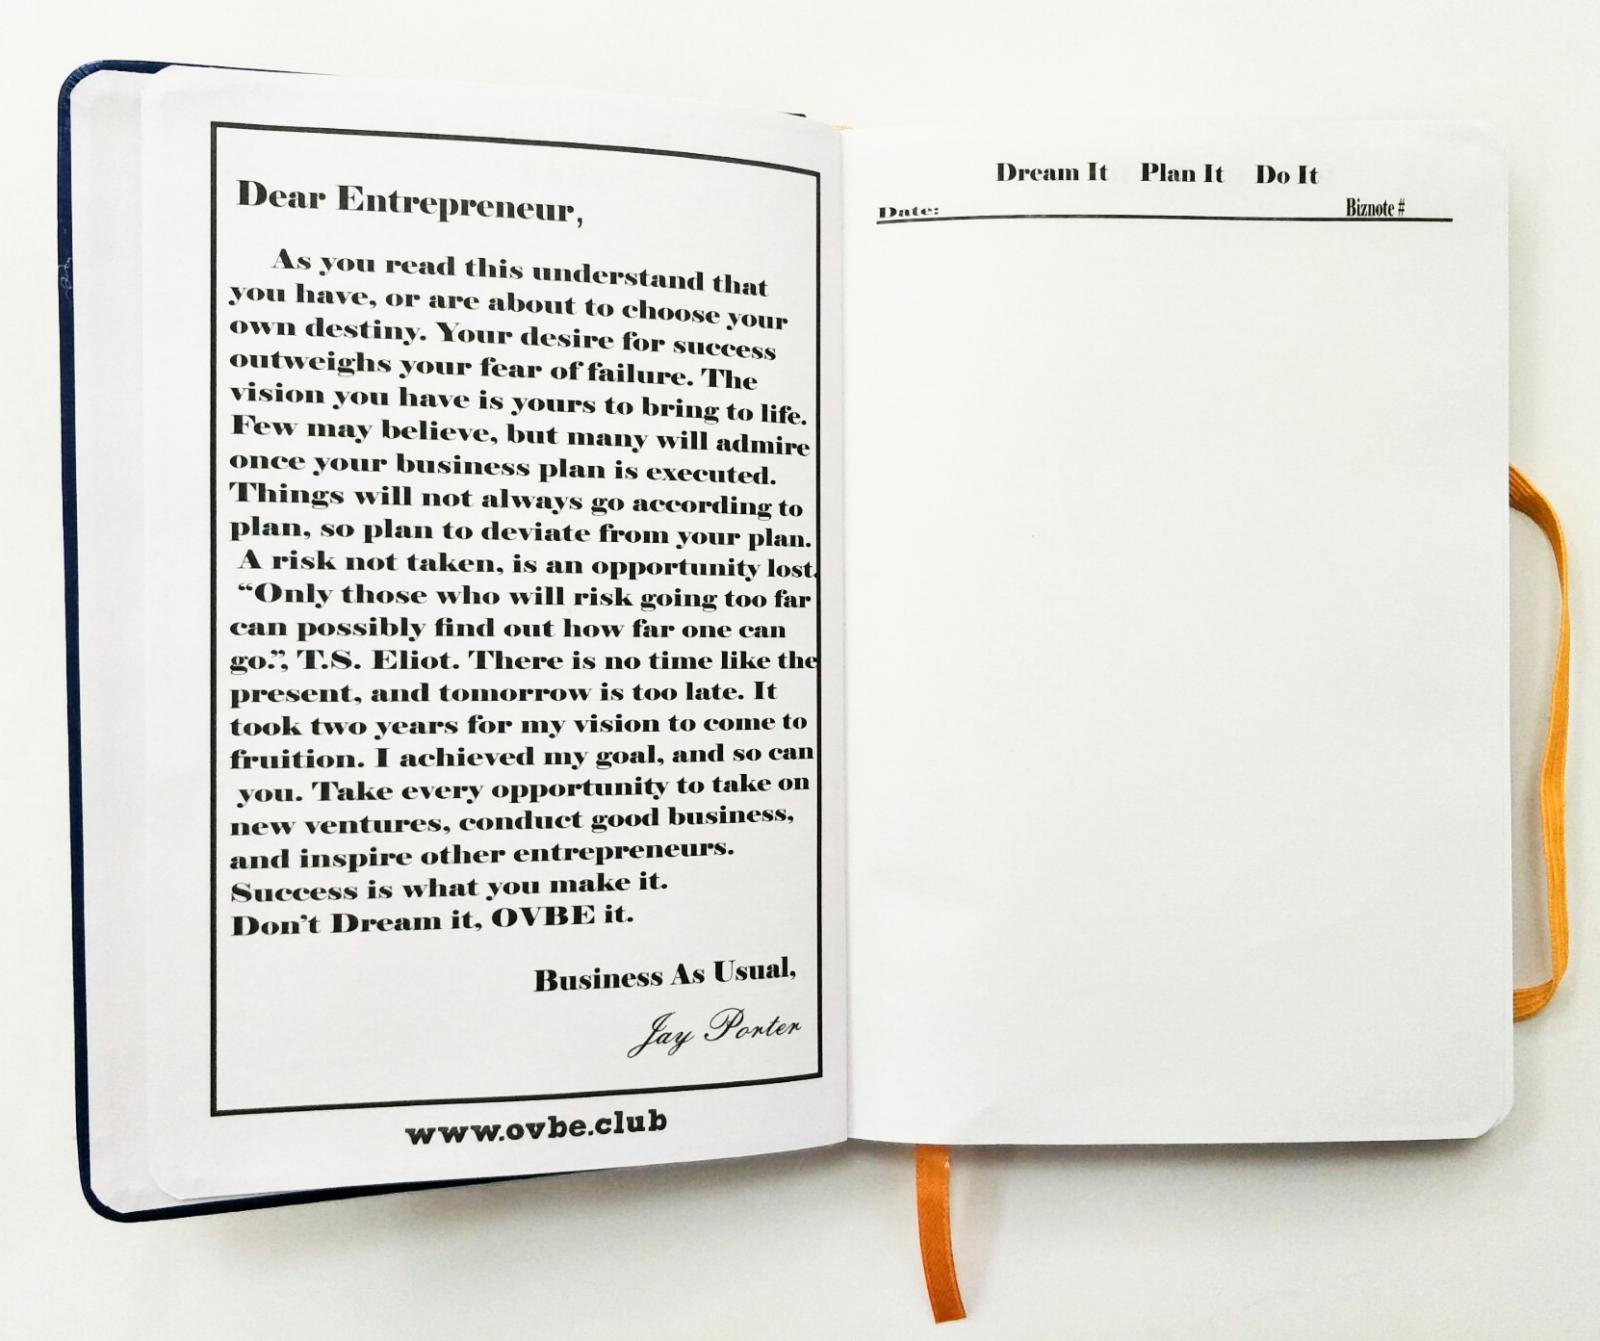 Dear Entrepreneur,
As you read this understand that
you have, or are about to choose your
own destiny. Your desire for success
outweighs your fear of failure. The
vision you have is yours to bring to life.
Few may believe, but many will admire
once your business plan is executed.
Things will not always go according to
plan, so plan to deviate from your plan.
A risk not taken, is an opportunity lost.
“Only those who will risk going too far
can possibly find out how far one can
go.”, T.S. Eliot. There is no time like the
present, and tomorrow is too late. It
took two years for my vision to come to
fruition. I achieved my goal, and so can
you. Take every opportunity to take on
new ventures, conduct good business,
and inspire other entrepreneurs.
Success is what you make it.
Don’t Dream it, OVBE it.
Business As Usual,
Jay Porter
www.ovbe.club
Dream It Plan It Do It
Date: Biznote #